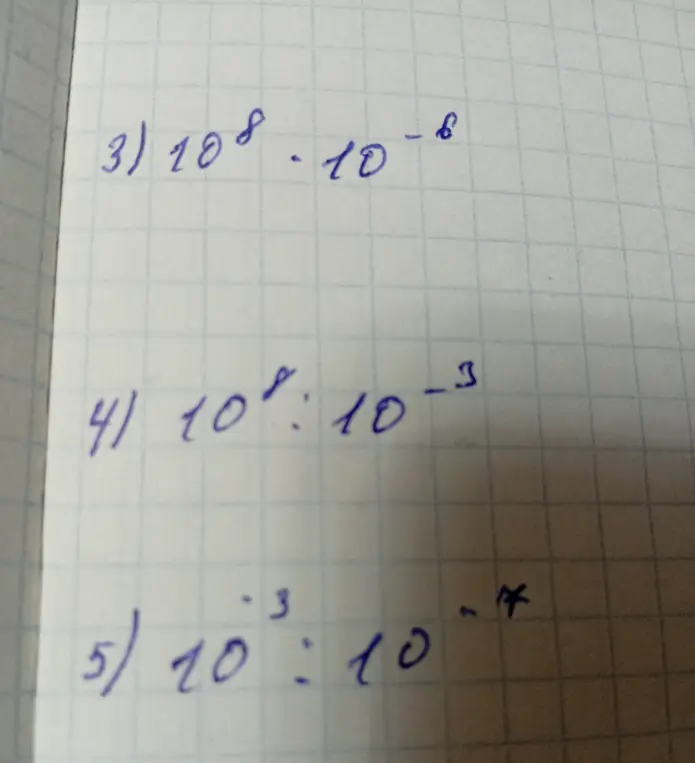 3) 10⁸ · 10⁻⁶
4) 10⁸ : 10⁻³
5) 10⁻³ : 10⁻⁷